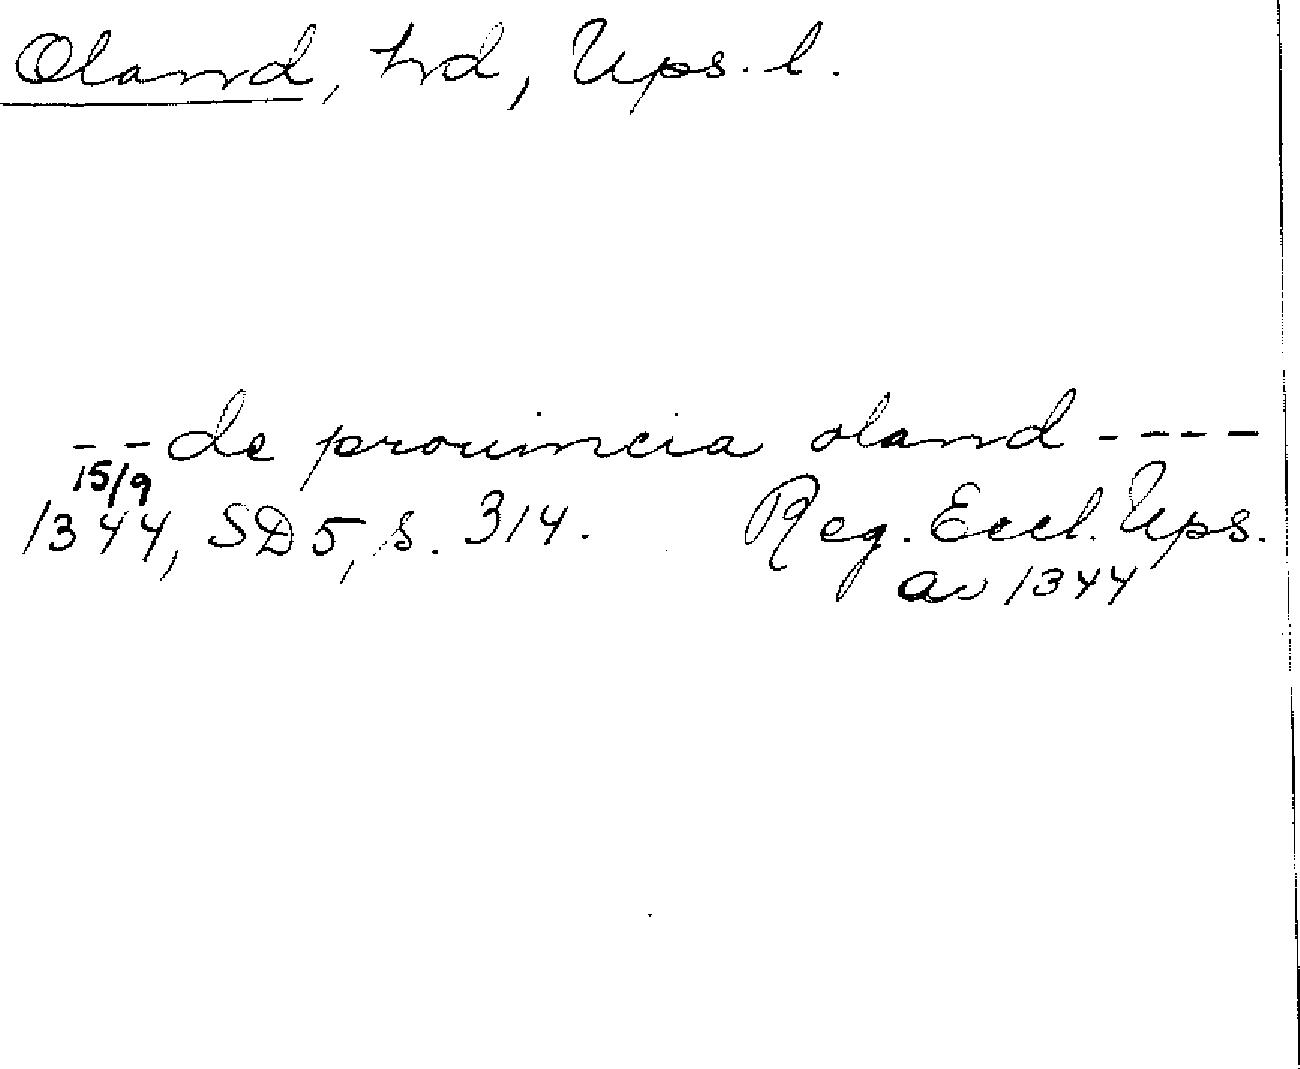 Oland, hd, Ups. l.
-- de prouincia oland ----
15/9
1344, SD 5, s. 314. Reg. Eccl. Ups.
av 1344